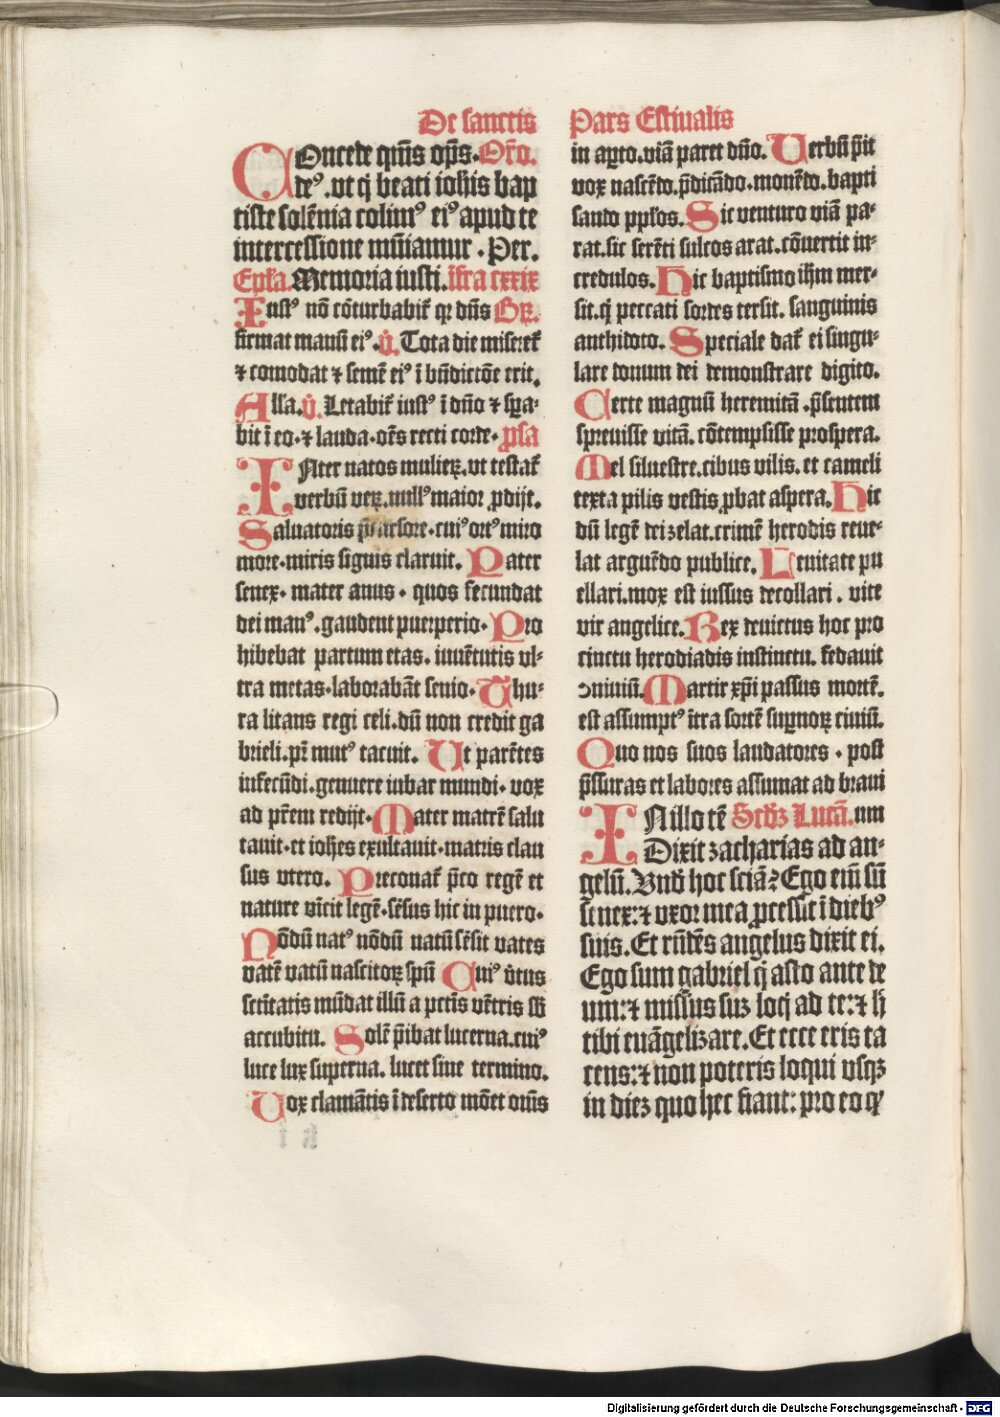 De sanctis
COncede qm̄s op̄s. Or̄o.
de⁹. vt q̄ beati ioh̄is bap
tiste solēnia colim⁹ ei⁹ apud te
intercessione mūiamur. Per.
Ep̄la. Memoria iusti. īfra cxxix
Iust⁹ nō cōturbabit̄ qꝛ dn̄s Gꝝ.
firmat manū ei⁹. v̄. Tota die miseret̄
⁊ comodat ⁊ semē ei⁹ ī bn̄dictōe erit.
Alla. v̄. Letabit̄ iust⁹ ī dn̄o ⁊ spa⸗
bit ī eo. ⁊ lauda. oēs recti corde. psa
INter natos mulieꝝ. vt testat̄
verbū veꝝ. null⁹ maior ꝓdijt.
Saluatoris p̄cursore. cui⁹ ort⁹ miro
more. miris signis claruit. Pater
senex. mater anus. quos fecundat
dei man⁹. gaudent puerperio. Pro
hibebat partum etas. iuuētutis vl⸗
tra metas. laborabāt senio. Thu⸗
ra litans regi celi. dū non credit ga
brieli. pr̄ mut⁹ tacuit. Ut parētes
infecūdi. genuere iubar mundi. vox
ad pr̄em redijt. Mater matrē salu
tauit. et ioh̄es exultauit. matris clau
sus vtero. Preconat̄ p̄co regē et
nature vīcit legē. sēsus hic in puero.
Nōdū nat⁹ nōdū natū sēsit vates
vatē vatū nascitoꝝ spū Cui⁹ v̄tus
sctītatis mūdat illū a pctīs vētris sb̄
accubitu. Solē p̄ibat lucerna. cui⁹
luce lux superna. lucet sine termino.
Vox clamātis ī deserto mōet om̄s
Pars Estiualis
in apto. viā paret dn̄o. Verbū p̄it
vox nascēdo. p̄dicādo. monēdo. bapti
sando pplos. Sic venturo viā pa⸗
rat. sic serēti sulcos arat. cōuertit in⸗
credulos. Hic baptismo ih̄m mer⸗
sit. q̄ peccati sordes tersit. sanguinis
anthidoto. Speciale dat̄ ei singu⸗
lare donum dei demonstrare digito.
Certe magnū heremitā. p̄sentem
spreuisse vitā. cōtempsisse prospera.
Mel siluestre. cibus vilis. et cameli
texta pilis vestis ꝓbat aspera. Hic
dū legē dei zelat. crimē herodis reue⸗
lat arguēdo publice. Leuitate pu
ellari. mox est iussus decollari. vite
vir angelice. Rex deuictus hoc pro
cinctu herodiadis instinctu. fedauit
ↄuiuiū. Martir xp̄i passus mortē.
est assumpt⁹ ītra sortē supnoꝝ ciuiū.
Quo nos suos laudatores. post
p̄ssuras et labores assumat ad braui
IN illo tē Scdꝫ Lucā. um
Dixit zacharias ad an⸗
gelū. Vnd̄ hoc sciā? Ego em̄ sū
senex: ⁊ vxor mea ꝓcessit ī dieb⁹
suis. Et rn̄dēs angelus dixit ei.
Ego sum gabriel q̄ asto ante de
um: ⁊ missus suꝫ loq̄ ad te: ⁊ h̄
tibi euāgelizare. Et ecce eris ta
cens: ⁊ non poteris loqui vsqꝫ
in dieꝫ quo hec fiant: pro eo qꝙ
Digitalisierung gefördert durch die Deutsche Forschungsgemeinschaft - DFG